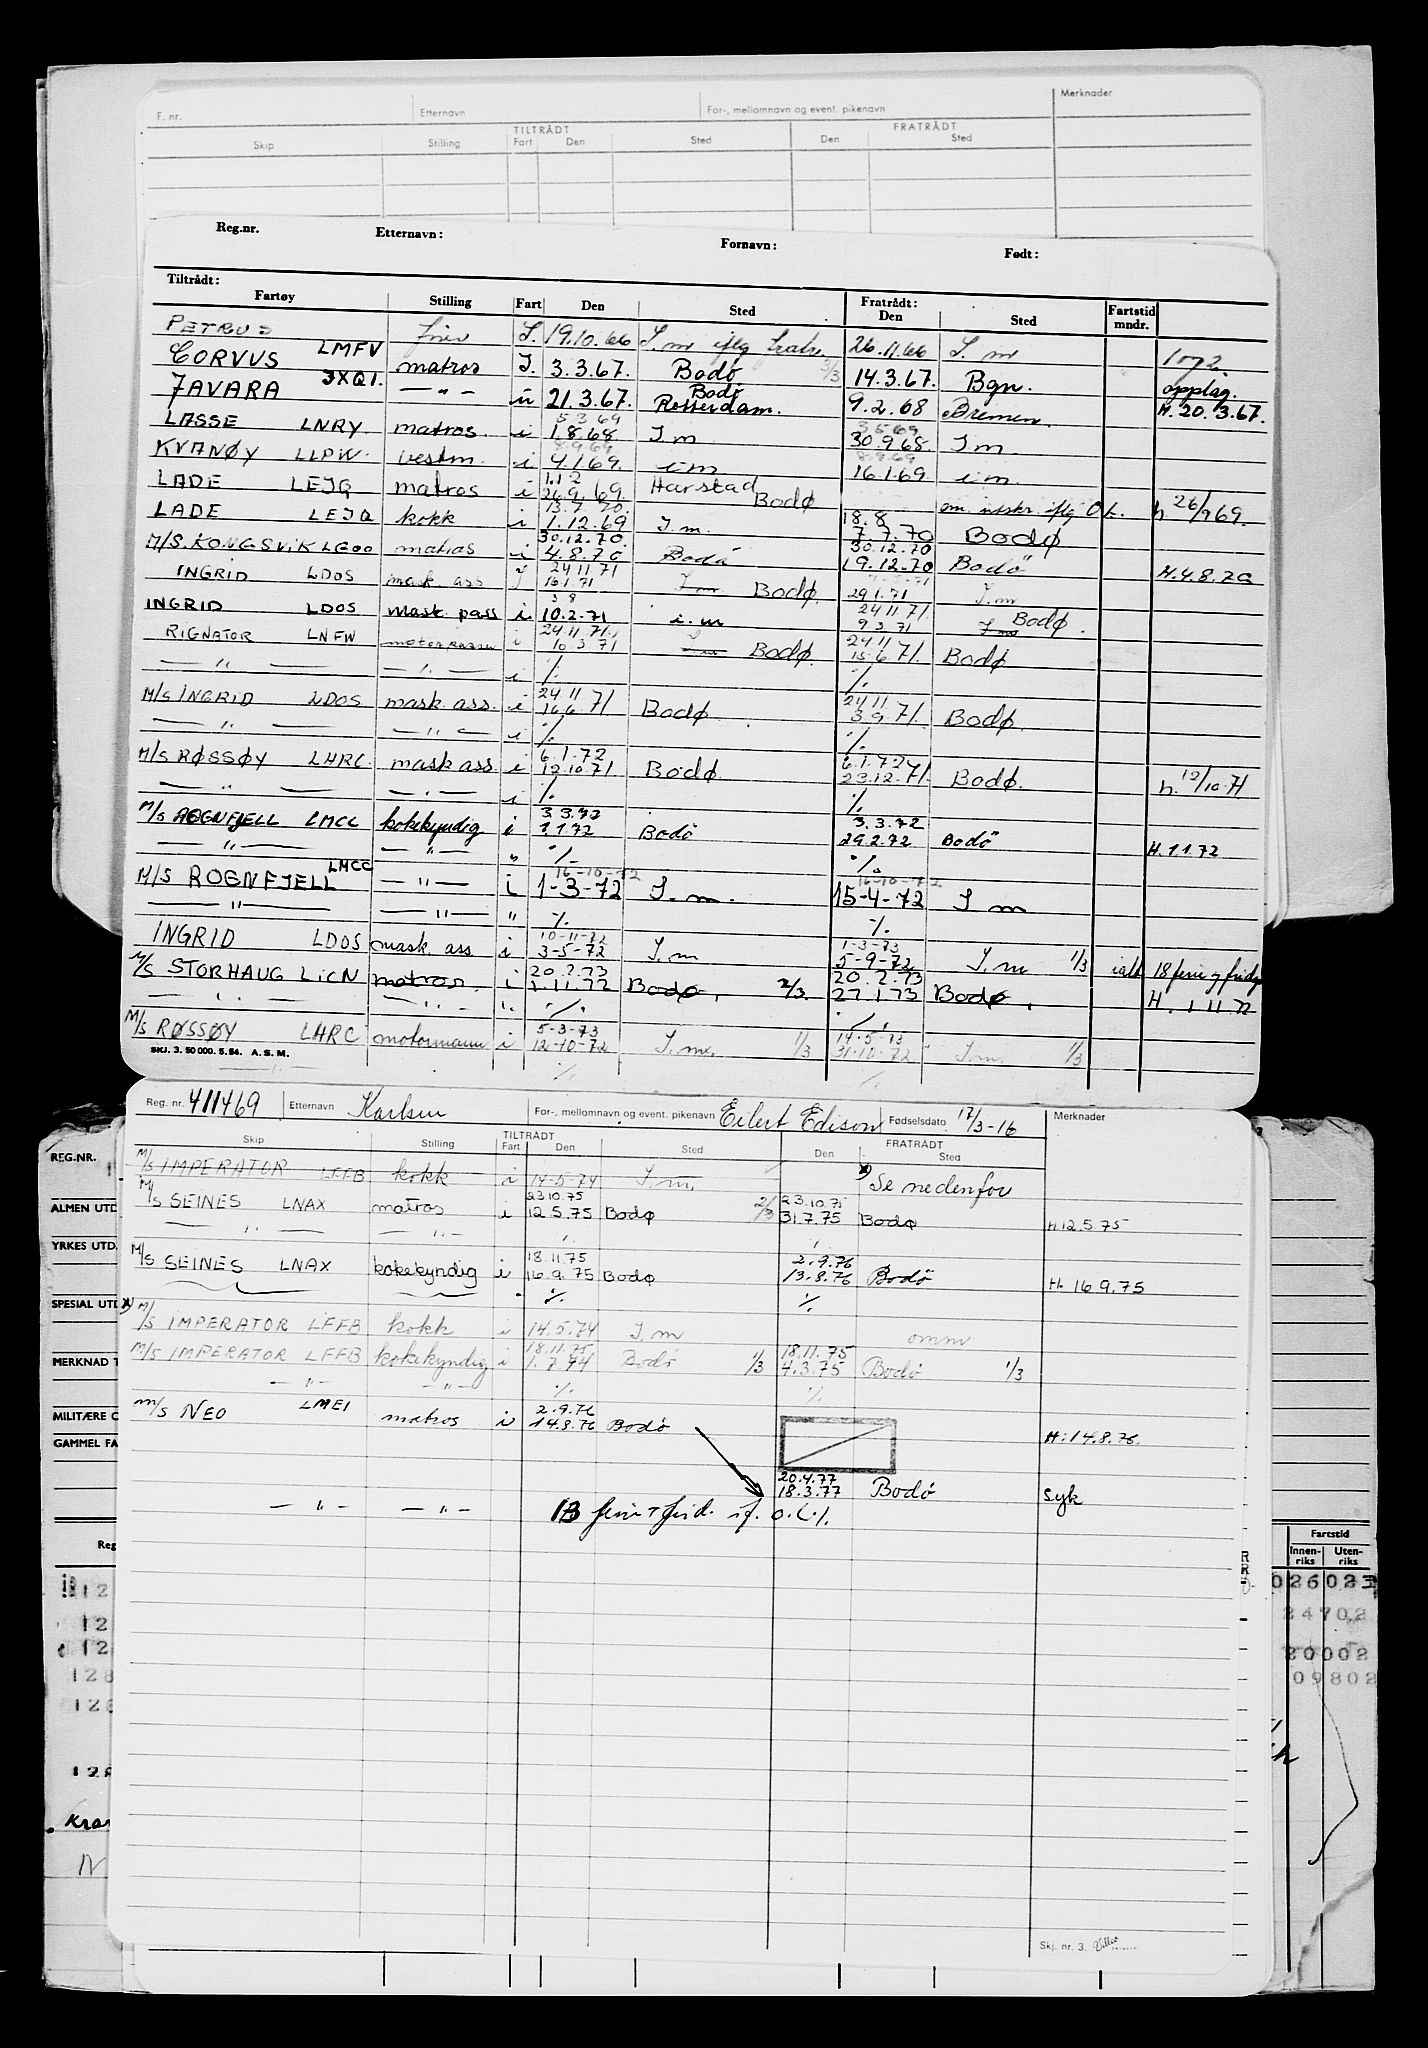 F. nr. Etternavn For-, mellomnavn og event. pikenavn Merknader
TILTRÅDT FRATRÅDT
Skip Stilling Fart Den Sted Den Sted
Reg.nr. Etternavn: Fornavn: Født:
Tiltrådt: Fratrådt:
Fartøy Stilling Fart Den Sted Den Sted Fartstid mndr.
PETRUS S. 19.10.66 I.m 26.11.66 I.m
CORVUS LMFV matros I. 3.3.67. Bodø 3/3 14.3.67. Bgn. opplag.
JAVARA 3XQI. — " — u 21.3.67. Bodø Rotterdam. 9.2.68 Bremen. H. 20.3.67.
LASSE LNRY matros. i 5 3 69 1.8.68 I m 3 5 69 30.9.68. I m.
KVANØY LLPW. i 8.9.69 4.1.69. i m 8.9.69 16.1.69. i m.
LADE LEJQ matros i 1.12 26.9.69. Harstad Bodø h 26/9 69.
LADE LEJQ kokk i 13.7.70. 1.12.69 I.m. 18.8 7.7.70 Bodø
M/S. KONGSVIK LGOO matros i 30.12.70. 4.8.70 Bodø 30.12.70 19.12.70 Bodø H.4.8.70
INGRID LDOS mask. ass I 24 11 71 16.1.71 I m Bodø. 29.1.71 I.m
INGRID LDOS mask. pass i. 3 8 10.2.71 i.m 24 11.71. 9 3 71 I m Bodø.
RIGNATOR LNFW i 24 11.71. 10.3.71 I m Bodø. 24 11 15.6.71. Bodø
— " — — " — i ./. ./.
M/S INGRID LDOS mask. ass. i 24 11 16.6.71 Bodø. 24 11 3.9.71. Bodø.
— " — — " — i ./. ./.
M/S RØSSØY LHRC. mask ass i 6.1.72 12.10.71 Bodø. 6.1.72. 23.12.71. Bodø. h. 12/10-71
— " — — " — i ./. ./.
M/S ROGNFJELL LMCC kokekyndig i 3.3.72 1.1.72 Bodø 3.3.72 29.2.72 Bodø H.1.1.72
— " — — " — " ./. ./.
M/S ROGNFJELL LMCC — " — i 16-10-72 1-3-72 I.m. 16-10-72 15-4-72 I m
— " — — " — " ./. ./.
INGRID LDOS mask. ass i 10-11-72 3-5-72 I.m 1-3-73 5-9-72 I.m 1/3 ialt 18 ferie og frid
M/S STORHAUG LICN matros. i 20.2.73 1.11.72 Bodø. 2/3. 20.2.73 27.1.73 Bodø. H. 1.11.72
— " — — " — " ./. ./.
M/S RØSSØY LHRC motormann i 5-3-73 12-10-72 I.m. 1/3 14-5-73 31.10.72 I.m. 1/3
SKJ. 3. 50 000. 5. 54. A. S. M.
— " — ./. ./.
Reg. nr. 411469 Etternavn Karlsen For-, mellomnavn og event. pikenavn Eilert Edison Fødselsdato 17/3-16 Merknader
TILTRÅDT FRATRÅDT
Skip Stilling Fart Den Sted Den Sted
M/S IMPERATOR LFFB kokk i 14-5-74 I.m. x) Se nedenfor
M/S SEINES LNAX matros i 23.10.75 12.5.75 Bodø 2/3 23.10.75 31.7.75 Bodø H.12.5.75
— " — — " — ./. ./.
M/S SEINES LNAX kokekyndig i 18.11.75 16.9.75 Bodø 2.9.76 13.8.76 Bodø H. 16.9.75
" ./. ./.
x) M/S IMPERATOR LFFB kokk i 14.5.74 I.m omm
M/S IMPERATOR LFFB kokekyndig i 18.11.75 1.7.74 Bodø 1/3 18.11.75 4.3.75 Bodø 1/3
— " — — " — ./. ./.
M/S NEO LMEI matros i 2.9.76 14.8.76 Bodø H.14.8.76.
20.4.77 18.3.77 Bodø syk
— " — — " — 13 ferie + frid. if. o.l.
REG.NR.
ALMEN UTD
YRKES UTD.
SPESIAL UTD
MERKNAD T
MILITÆRE O
GAMMEL FA
Reg
Fartstid
Innen-riks Uten-riks
12 02602
12 24702
12 20002
128 09802
128
128
Skj. nr. 3.